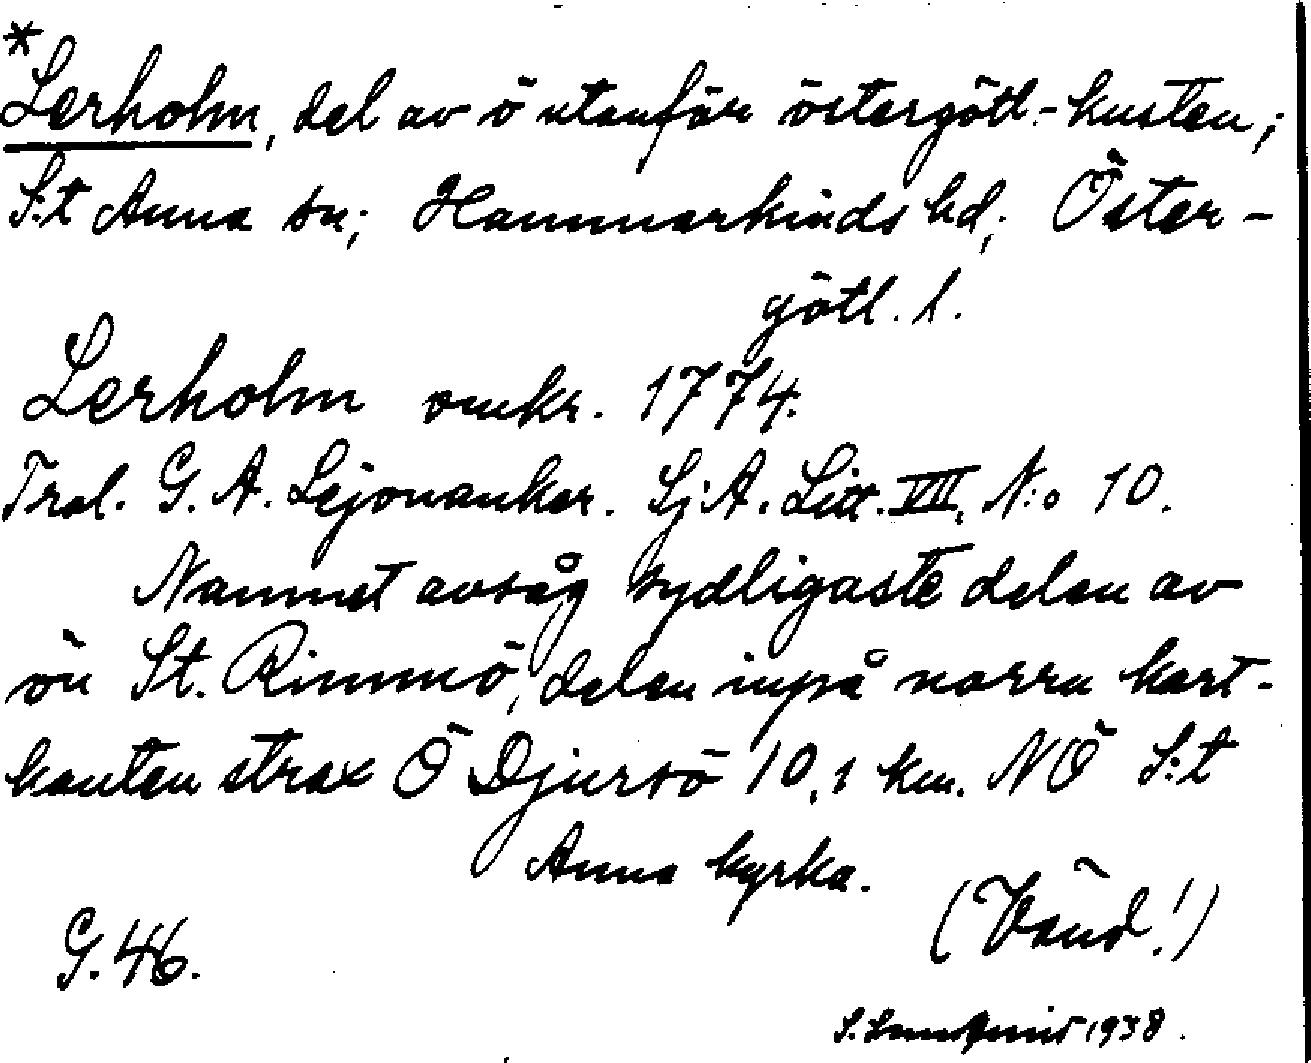 *
Lerholm, del av ö utanför östergötl.-kusten;
S:t Anna sn; Hammarkinds hd; Öster-
götl. l.
Lerholm omkr. 1774.
Trol. G. A. Lejonanker. Sj.A. Litt. VII, N:o 10.
Namnet avsåg sydligaste delen av
ön St. Rimmö, delen invpå norra kart-
kanten strax Ö Djursö 10,1 km. NÖ S:t
Anna kyrka.
(Vänd!)
G. 46.
S. 1938.